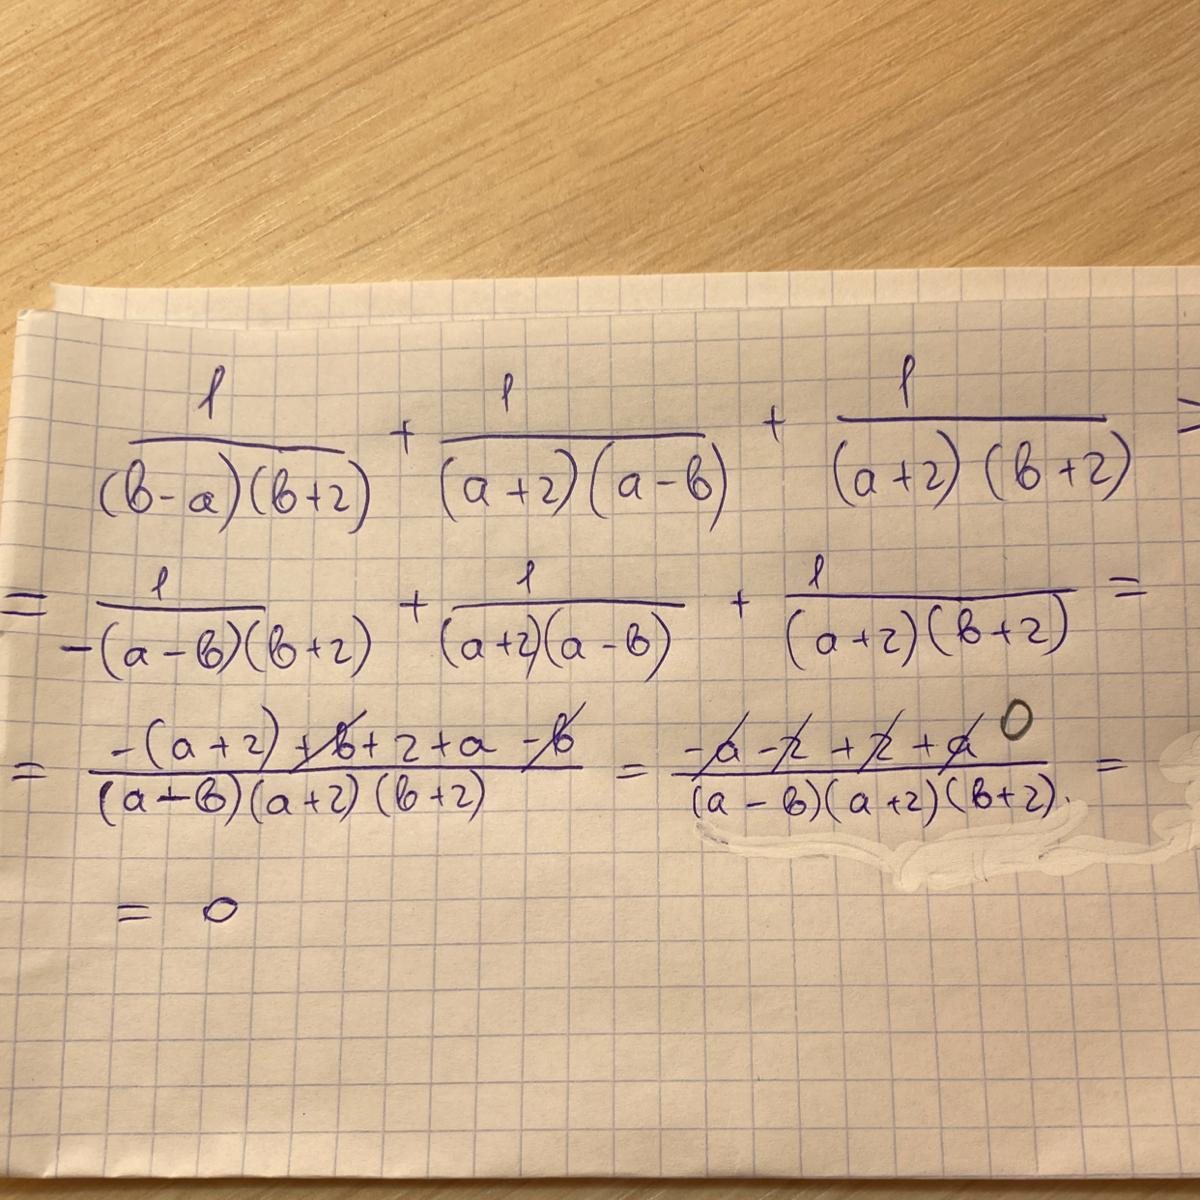 1/((b-a)(b+2)) + 1/((a+2)(a-b)) + 1/((a+2)(b+2)) =
= 1/(-(a-b)(b+2)) + 1/((a+2)(a-b)) + 1/((a+2)(b+2)) =
= (-(a+2)+b+2+a-b)/((a-b)(a+2)(b+2)) = (-a-2+2+a 0)/((a-b)(a+2)(b+2)) =
= 0